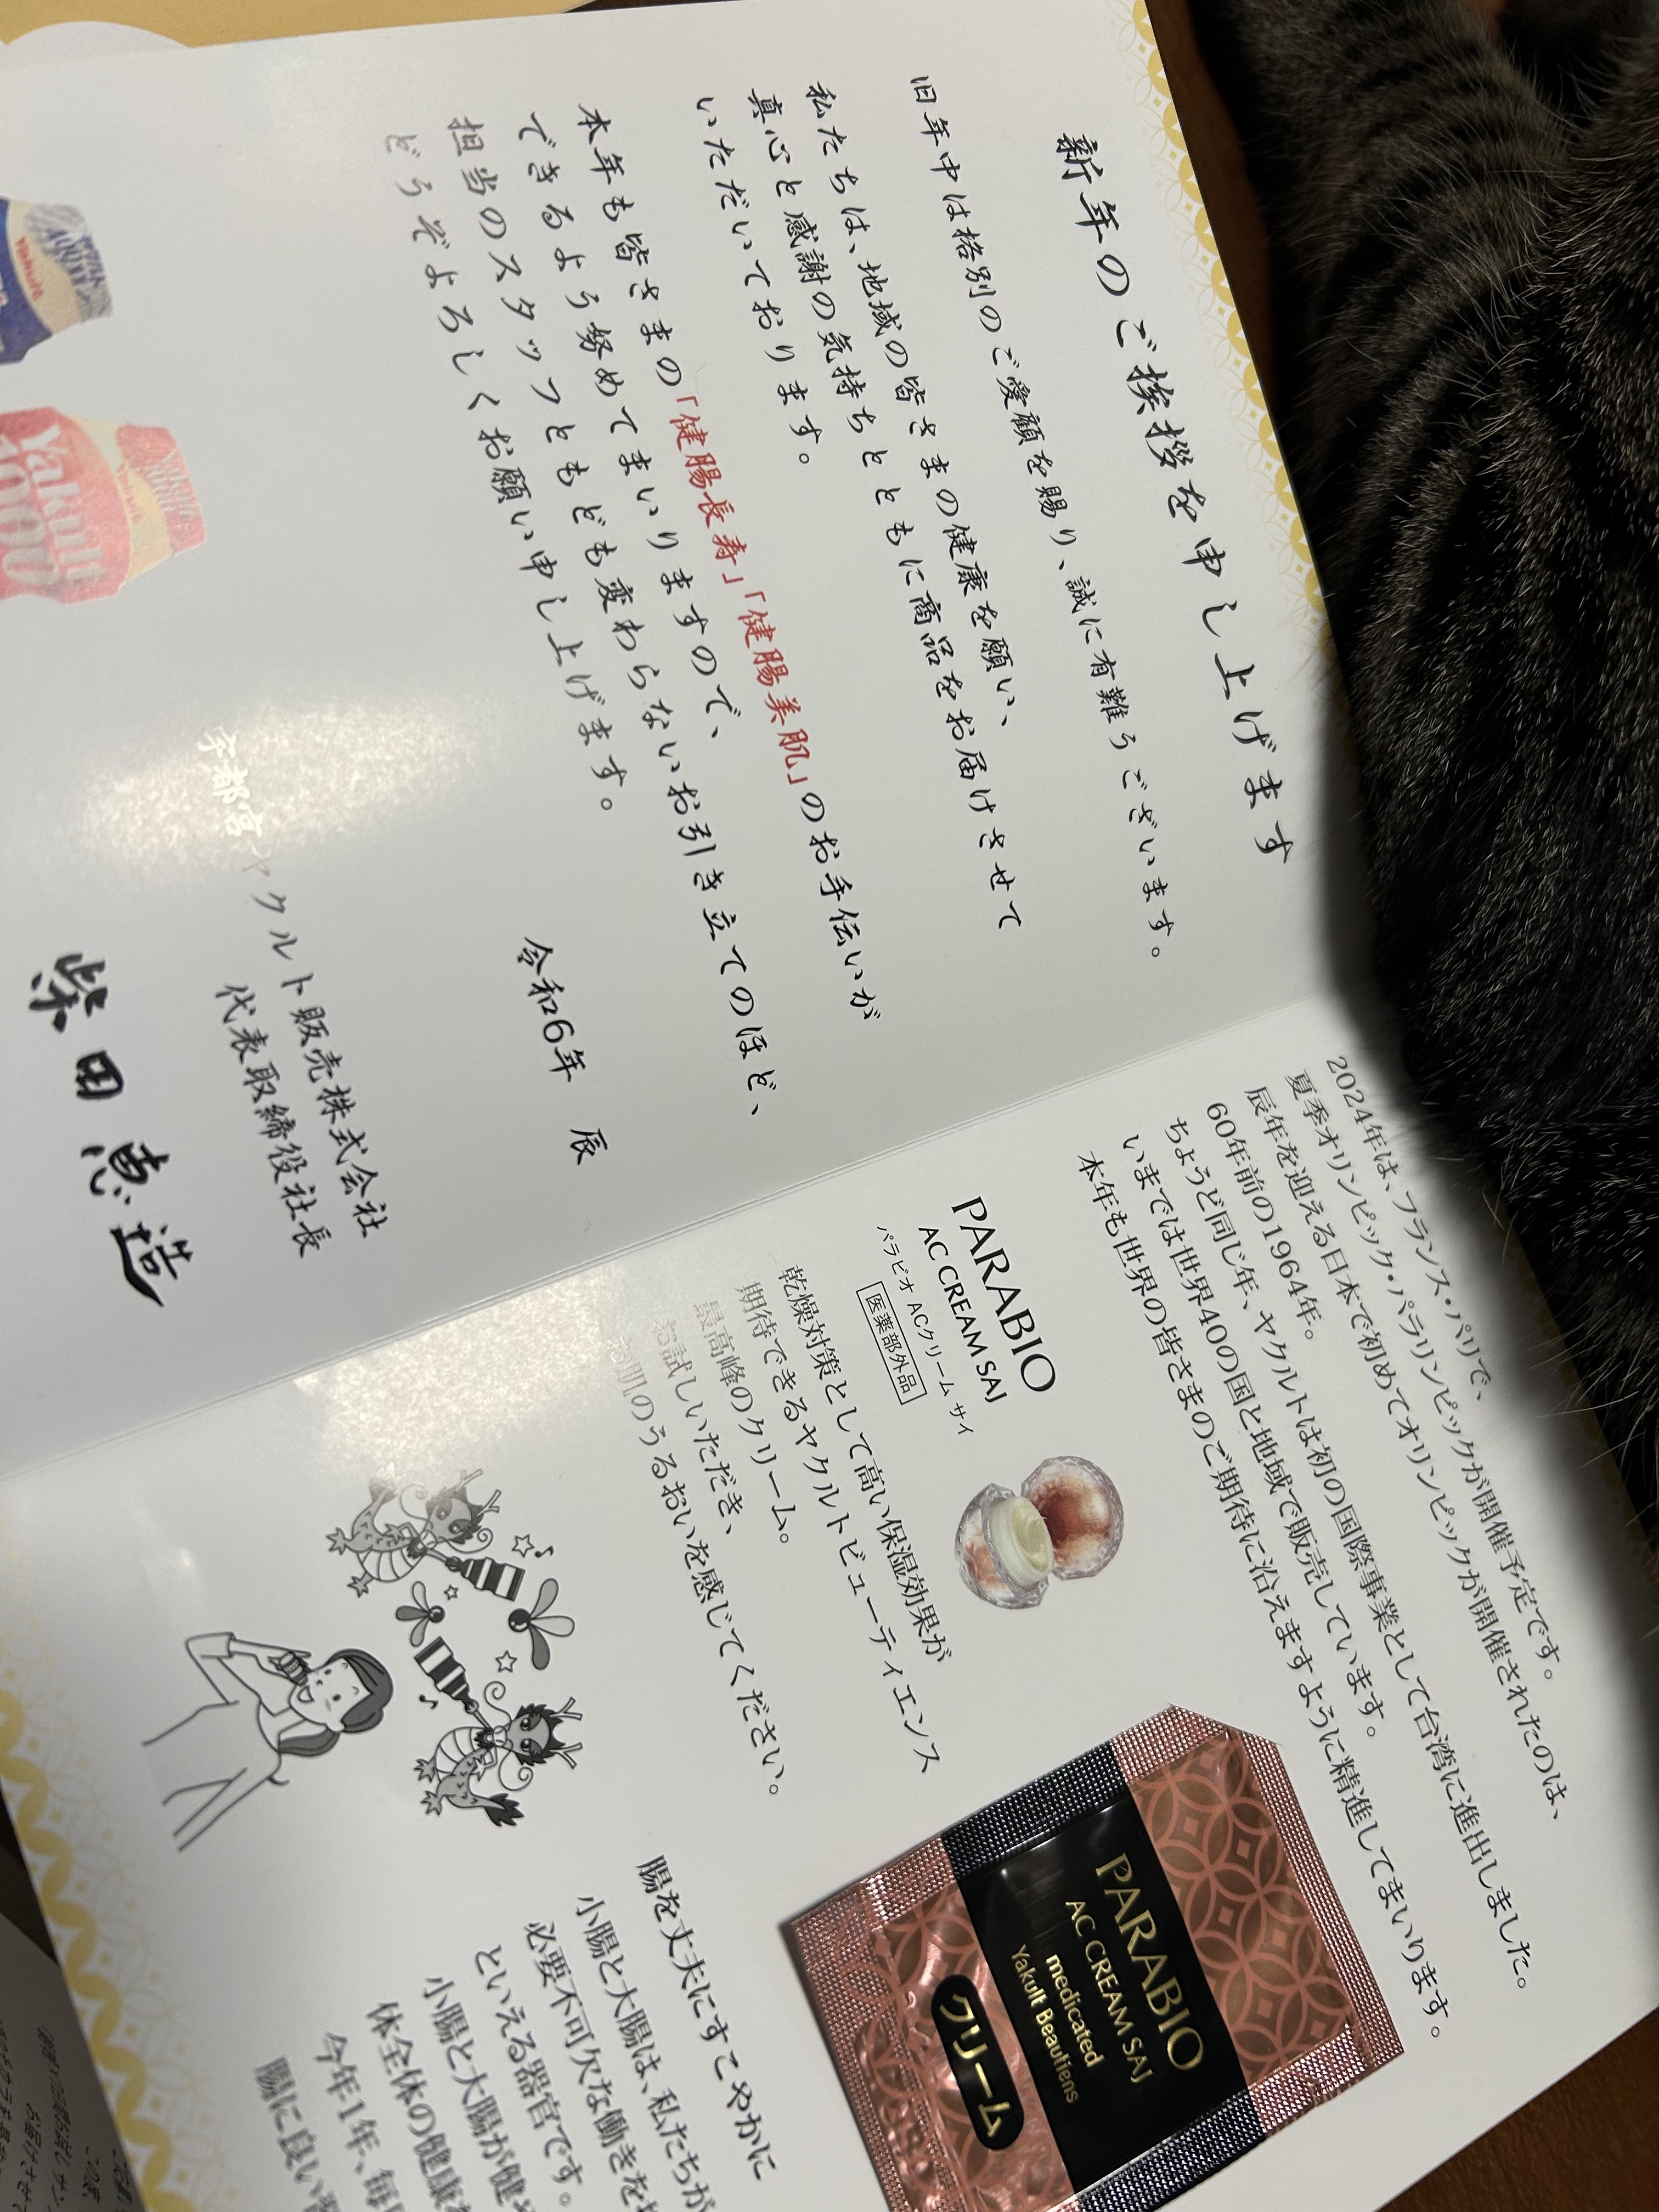 新年のご挨拶を申し上げます
旧年中は格別のご愛顧を賜り、誠に有難うございます。
私たちは、地域の皆さまの健康を願い、
真心と感謝の気持ちとともに商品をお届けさせて
いただいております。
本年も皆さまの「健腸長寿」「健腸美肌」のお手伝いが
できるよう努めてまいりますので、
担当のスタッフともども変わらないお引き立てのほど、
どうぞよろしくお願い申し上げます。
令和6年 辰
宇都宮ヤクルト販売株式会社
代表取締役社長
柴田 恵造
Yakult
Yakult
1000
2024年は、フランス・パリで、
夏季オリンピック・パラリンピックが開催予定です。
辰年を迎える日本で初めてオリンピックが開催されたのは、
60年前の1964年。
ちょうど同じ年、ヤクルトは初の国際事業として台湾に進出しました。
いまでは世界40の国と地域で販売しています。
本年も世界の皆さまのご期待に沿えますように精進してまいります。
PARABIO
AC CREAM SAI
パラビオ ACクリーム サイ
医薬部外品
乾燥対策として高い保湿効果が
期待できるヤクルトビューティエンス
最高峰のクリーム。
お試しいただき、
お肌のうるおいを感じてください。
PARABIO
AC CREAM SAI
medicated
Yakult Beautiens
クリーム
腸を丈夫にすこやかに
小腸と大腸は、私たちが
必要不可欠な働きを
といえる器官です。
小腸と大腸が健
体全体の健康
今年1年、毎
腸に良い